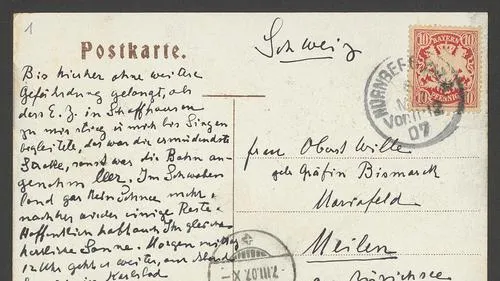 1
Postkarte.
Schweiz
BAYERN
10 10
10 PFENNIG 10
NÜRNBERG
Vorm. 11-12
07
Bis hierher ohne weitere
Gefährdung gelangt, als
dass E. Z. in Schaffhausen
zu mir stieg u mich bis Singen
begleitete, das war die ermüdendste
Strecke, sonst war die Bahn an-
genehm leer. Im Schwaben
land gar kein Schnee mehr,
nachher wieder einige Reste.
Hoffentlich habt auch Ihr gleich
herrliche Sonne. Morgen mittag
12 Uhr geht es weiter, am Abend
Karlsbad
Frau Oberst Wille
geb Gräfin Bismarck
Mariafeld
Meilen
a Zürichsee
7.III.07.X